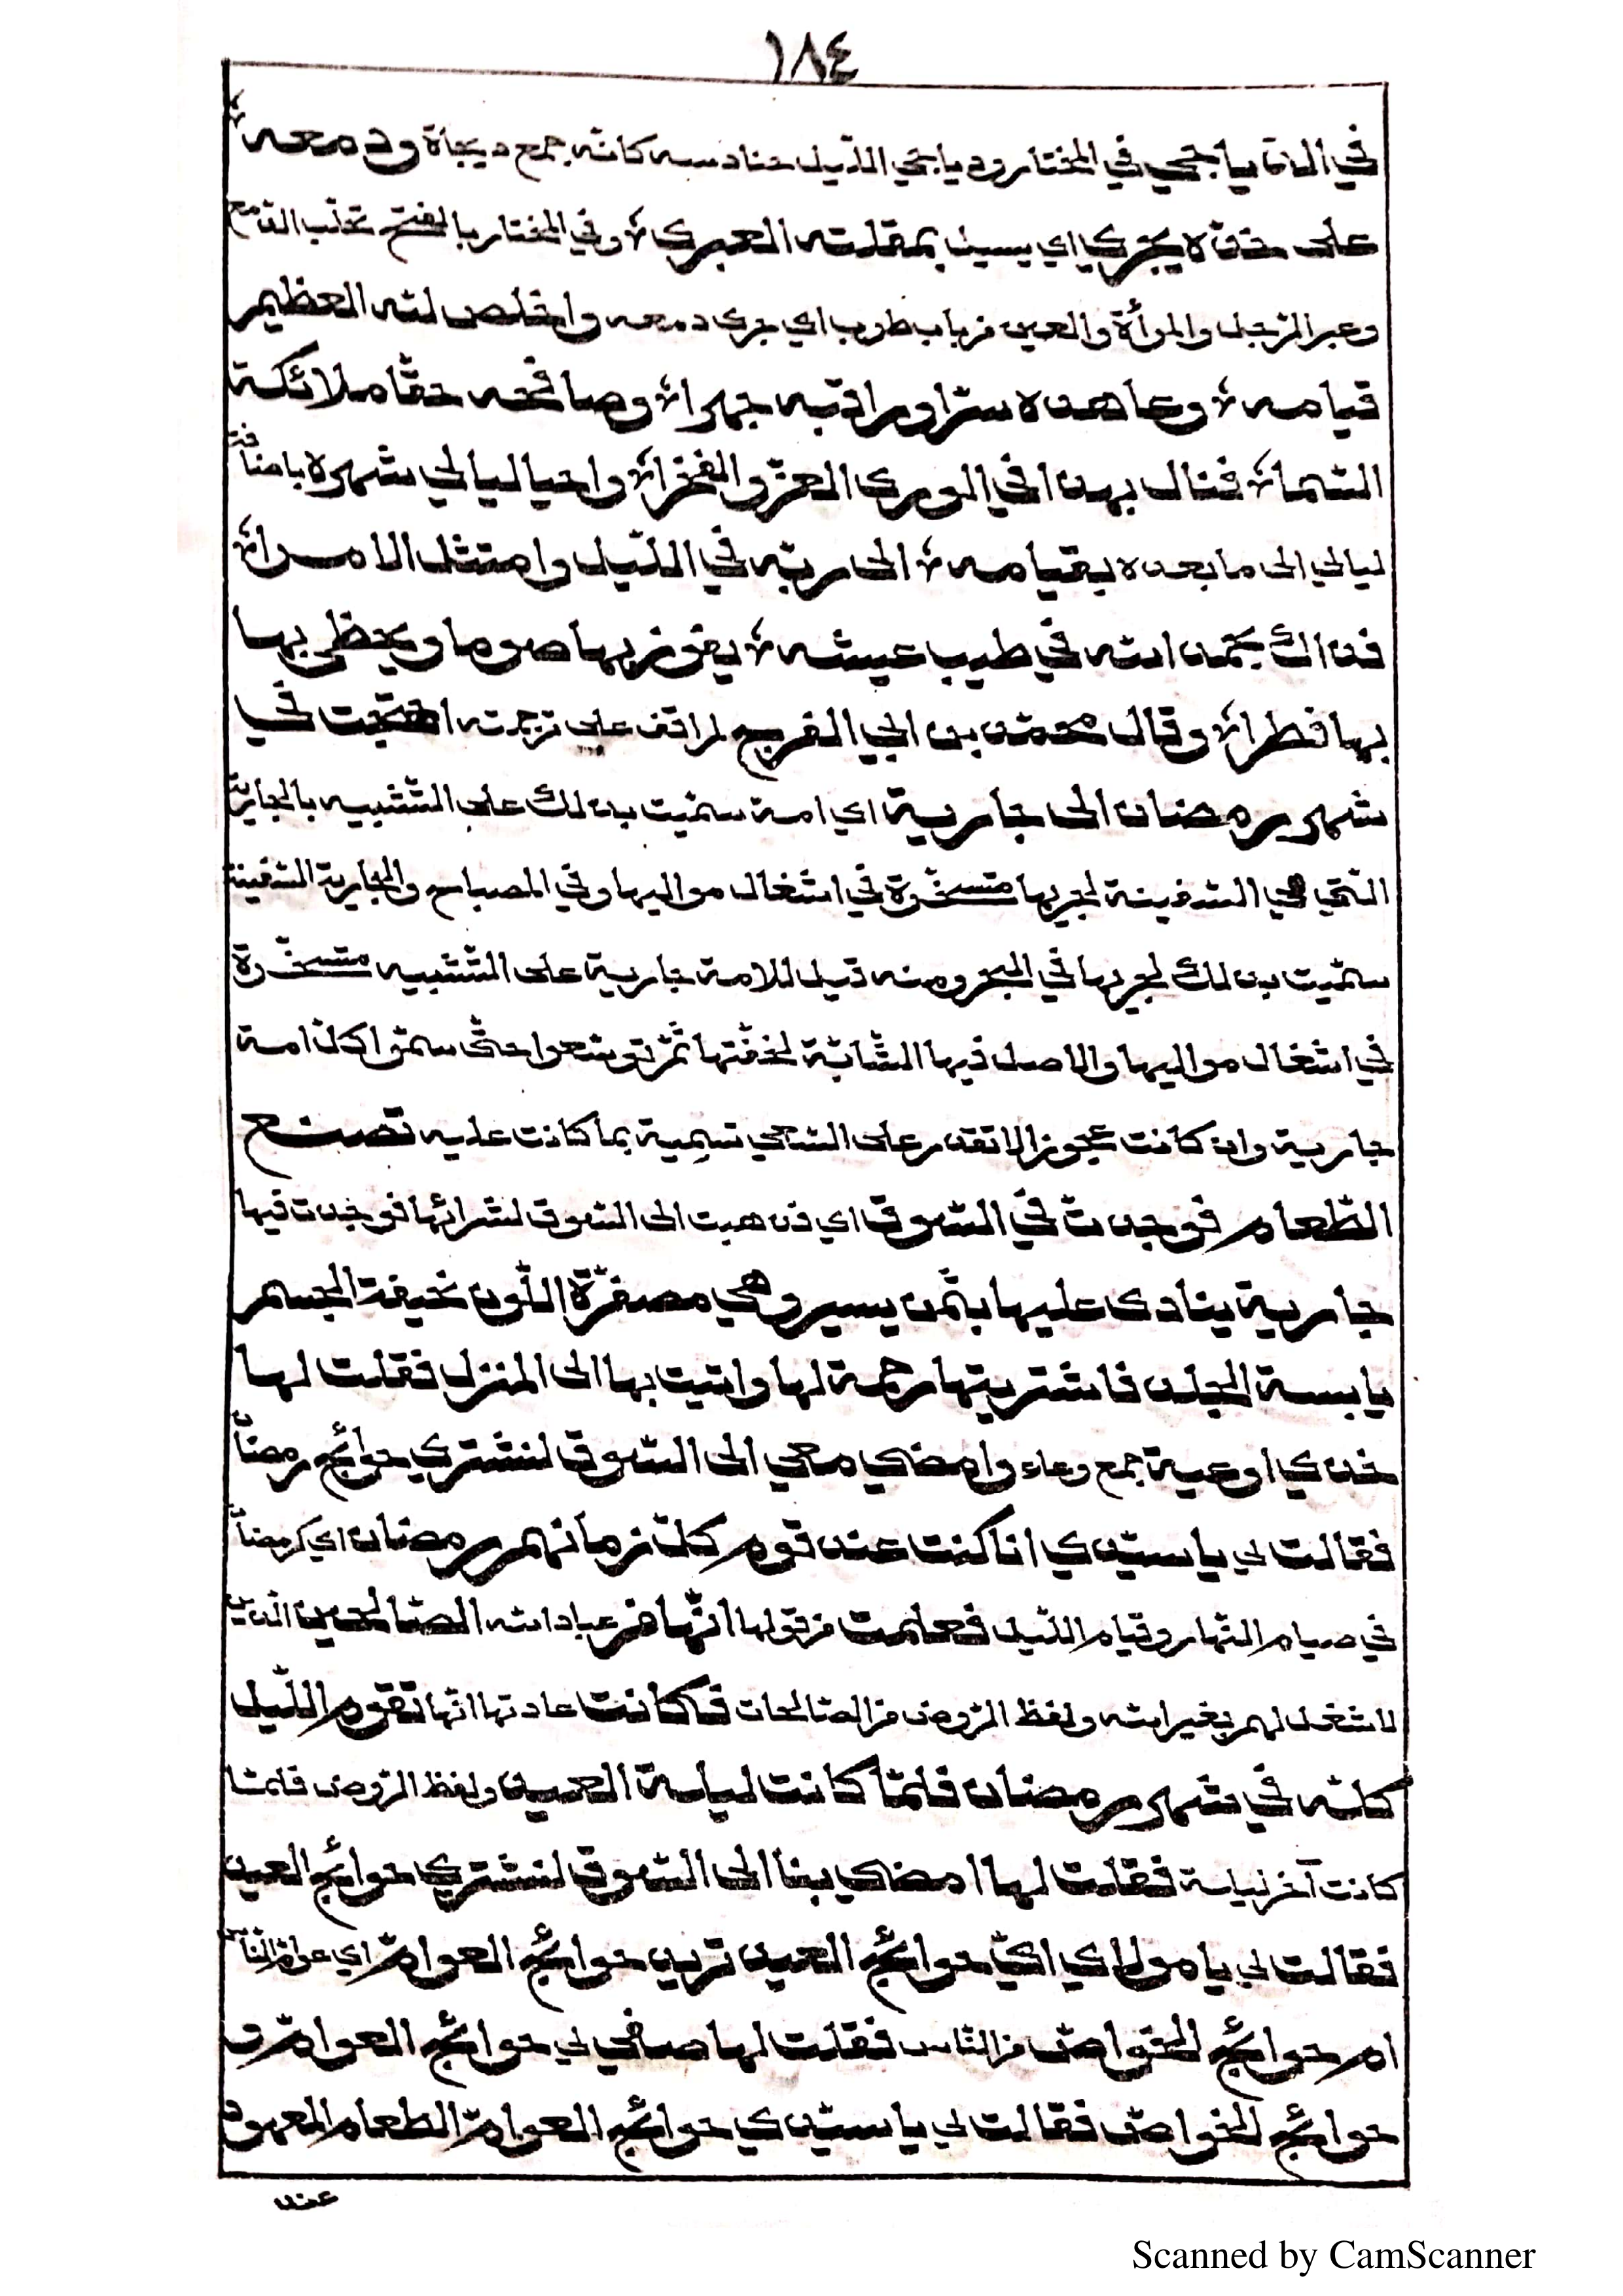 ١٨٤
في الدياجي في المختار ودياجي الليل حنادسه كانه جمع ديجاة ودمعه
على خده يجري اي يسيل بمقلته العبرى وفي المختار بالفتح تحلب الدمع
وعبر الرجل والمرأة والعين من باب طرب اي جرى دمعه واخلص لله العظيم
قيامه وعاهده سرّا وراقبه جهرا وصافحه حقّا ملائكة
السّما فنال بهذا في الورى العزّ والفخرا واحيا ليالي شهره باضافة
ليالي الى ما بعده بقيامه الى ربّه في اللّيل وامتثل الامرا
فذاك بحمد الله في طيب عيشه يفوز بها صوما ويحظى بها
بها فطرا وقال محمّد بن ابي الفرج لم اقف على ترجمته احتجت في
شهر رمضان الى جارية اي امة سمّيت بذلك على التّشبيه بالجارية
الّتي هي السّفينة لجريها متسخّرة في اشغال مواليها وفي المصباح والجارية السّفينة
سمّيت بذلك لجريها في البحر ومنه قيل للامة جارية على التّشبيه متسخّرة
في اشغال مواليها والاصل فيها الشّابّة لخفّتها ثمّ توسّعوا حتّى سمّوا كلّ امة
جارية وان كانت عجوزا لا تقدر على السّعي تسمية بما كانت عليه تصنع
الطّعام فوجدت في السّوق اي ذهبت الى السّوق لشرائها فوجدت فيها
جارية ينادى عليها بثمن يسير وهي مصفرّة اللّون نحيفة الجسم
يابسة الجلد فاشتريتها رحمة لها واتيت بها الى المنزل فقلت لها
خذي اوعية جمع وعاء وامضي معي الى السّوق لنشتري حوائج رمضان
فقالت لي يا سيّدي انا كنت عند قوم كلّ زمانهم رمضان اي كرمضان
في صيام النّهار وقيام اللّيل فعلمت من قولها انّها من عباد الله الصّالحين الّذين
لا شغل لهم بغير الله ولفظ الرّوض من الصّالحات فكانت عادتها انّها تقوم اللّيل
كلّه في شهر رمضان فلمّا كانت ليلة العيد ولفظ الرّوض فلمّا
كانت آخر ليلة فقلت لها امضي بنا الى السّوق لنشتري حوائج العيد
فقالت لي يا مولاي ايّ حوائج العيد تريد حوائج العوامّ اي عوامّ النّاس
ام حوائج الخواصّ من النّاس فقلت لها صفي لي حوائج العوامّ و
حوائج الخواصّ فقالت لي يا سيّدي حوائج العوامّ الطعام المعهود
عند
Scanned by CamScanner